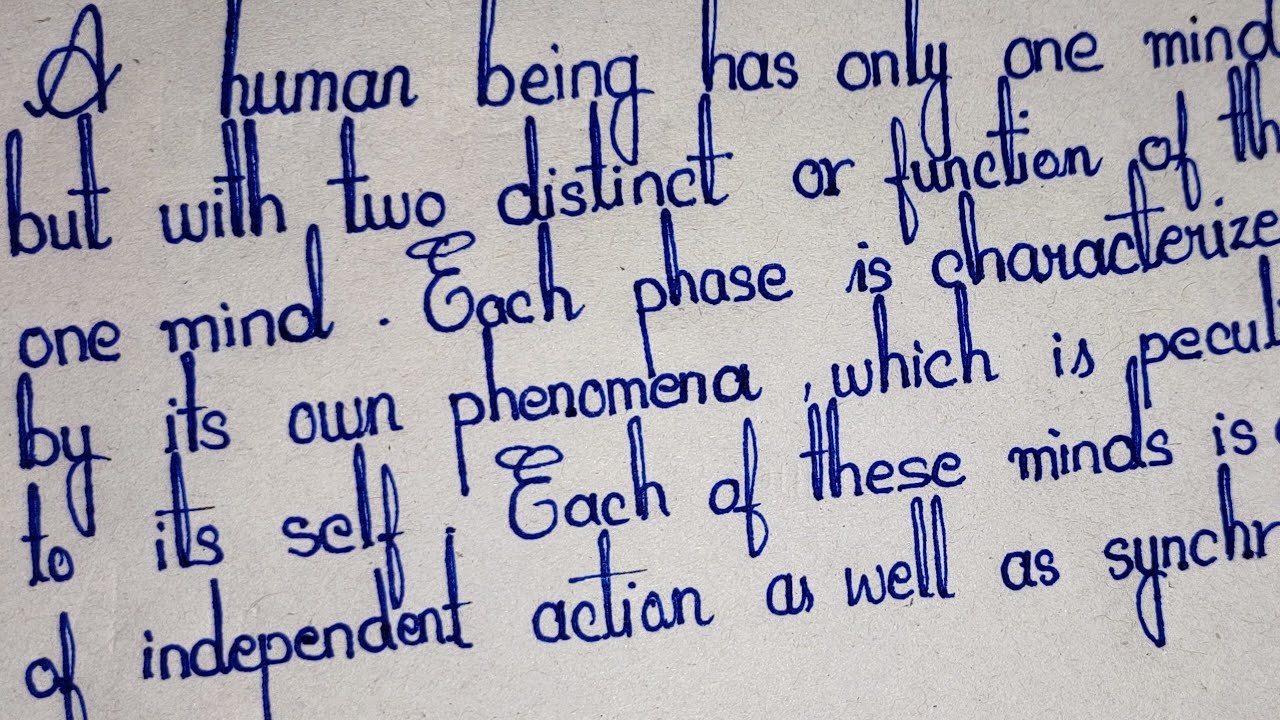 A human being has only one mind
but with two distinct or function of th
one mind. Each phase is characterize
by its own phenomena, which is pecul
to its self. Each of these minds is
of independent action as well as synchr